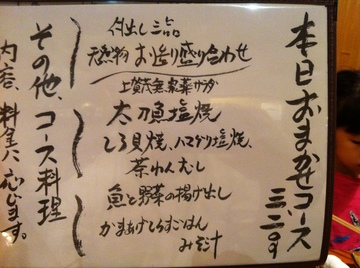 本日おまかせコース
三、二〇〇
付出し三品
天然物お造り盛り合わせ
上賀茂産家菜サラダ
太刀魚塩焼
しろ貝焼、ハマグリ塩焼、
茶わんむし
魚と野菜の揚げ出し
かまあげしらすごはん
みそ汁
その他、コース料理
内容、料金に応じます。